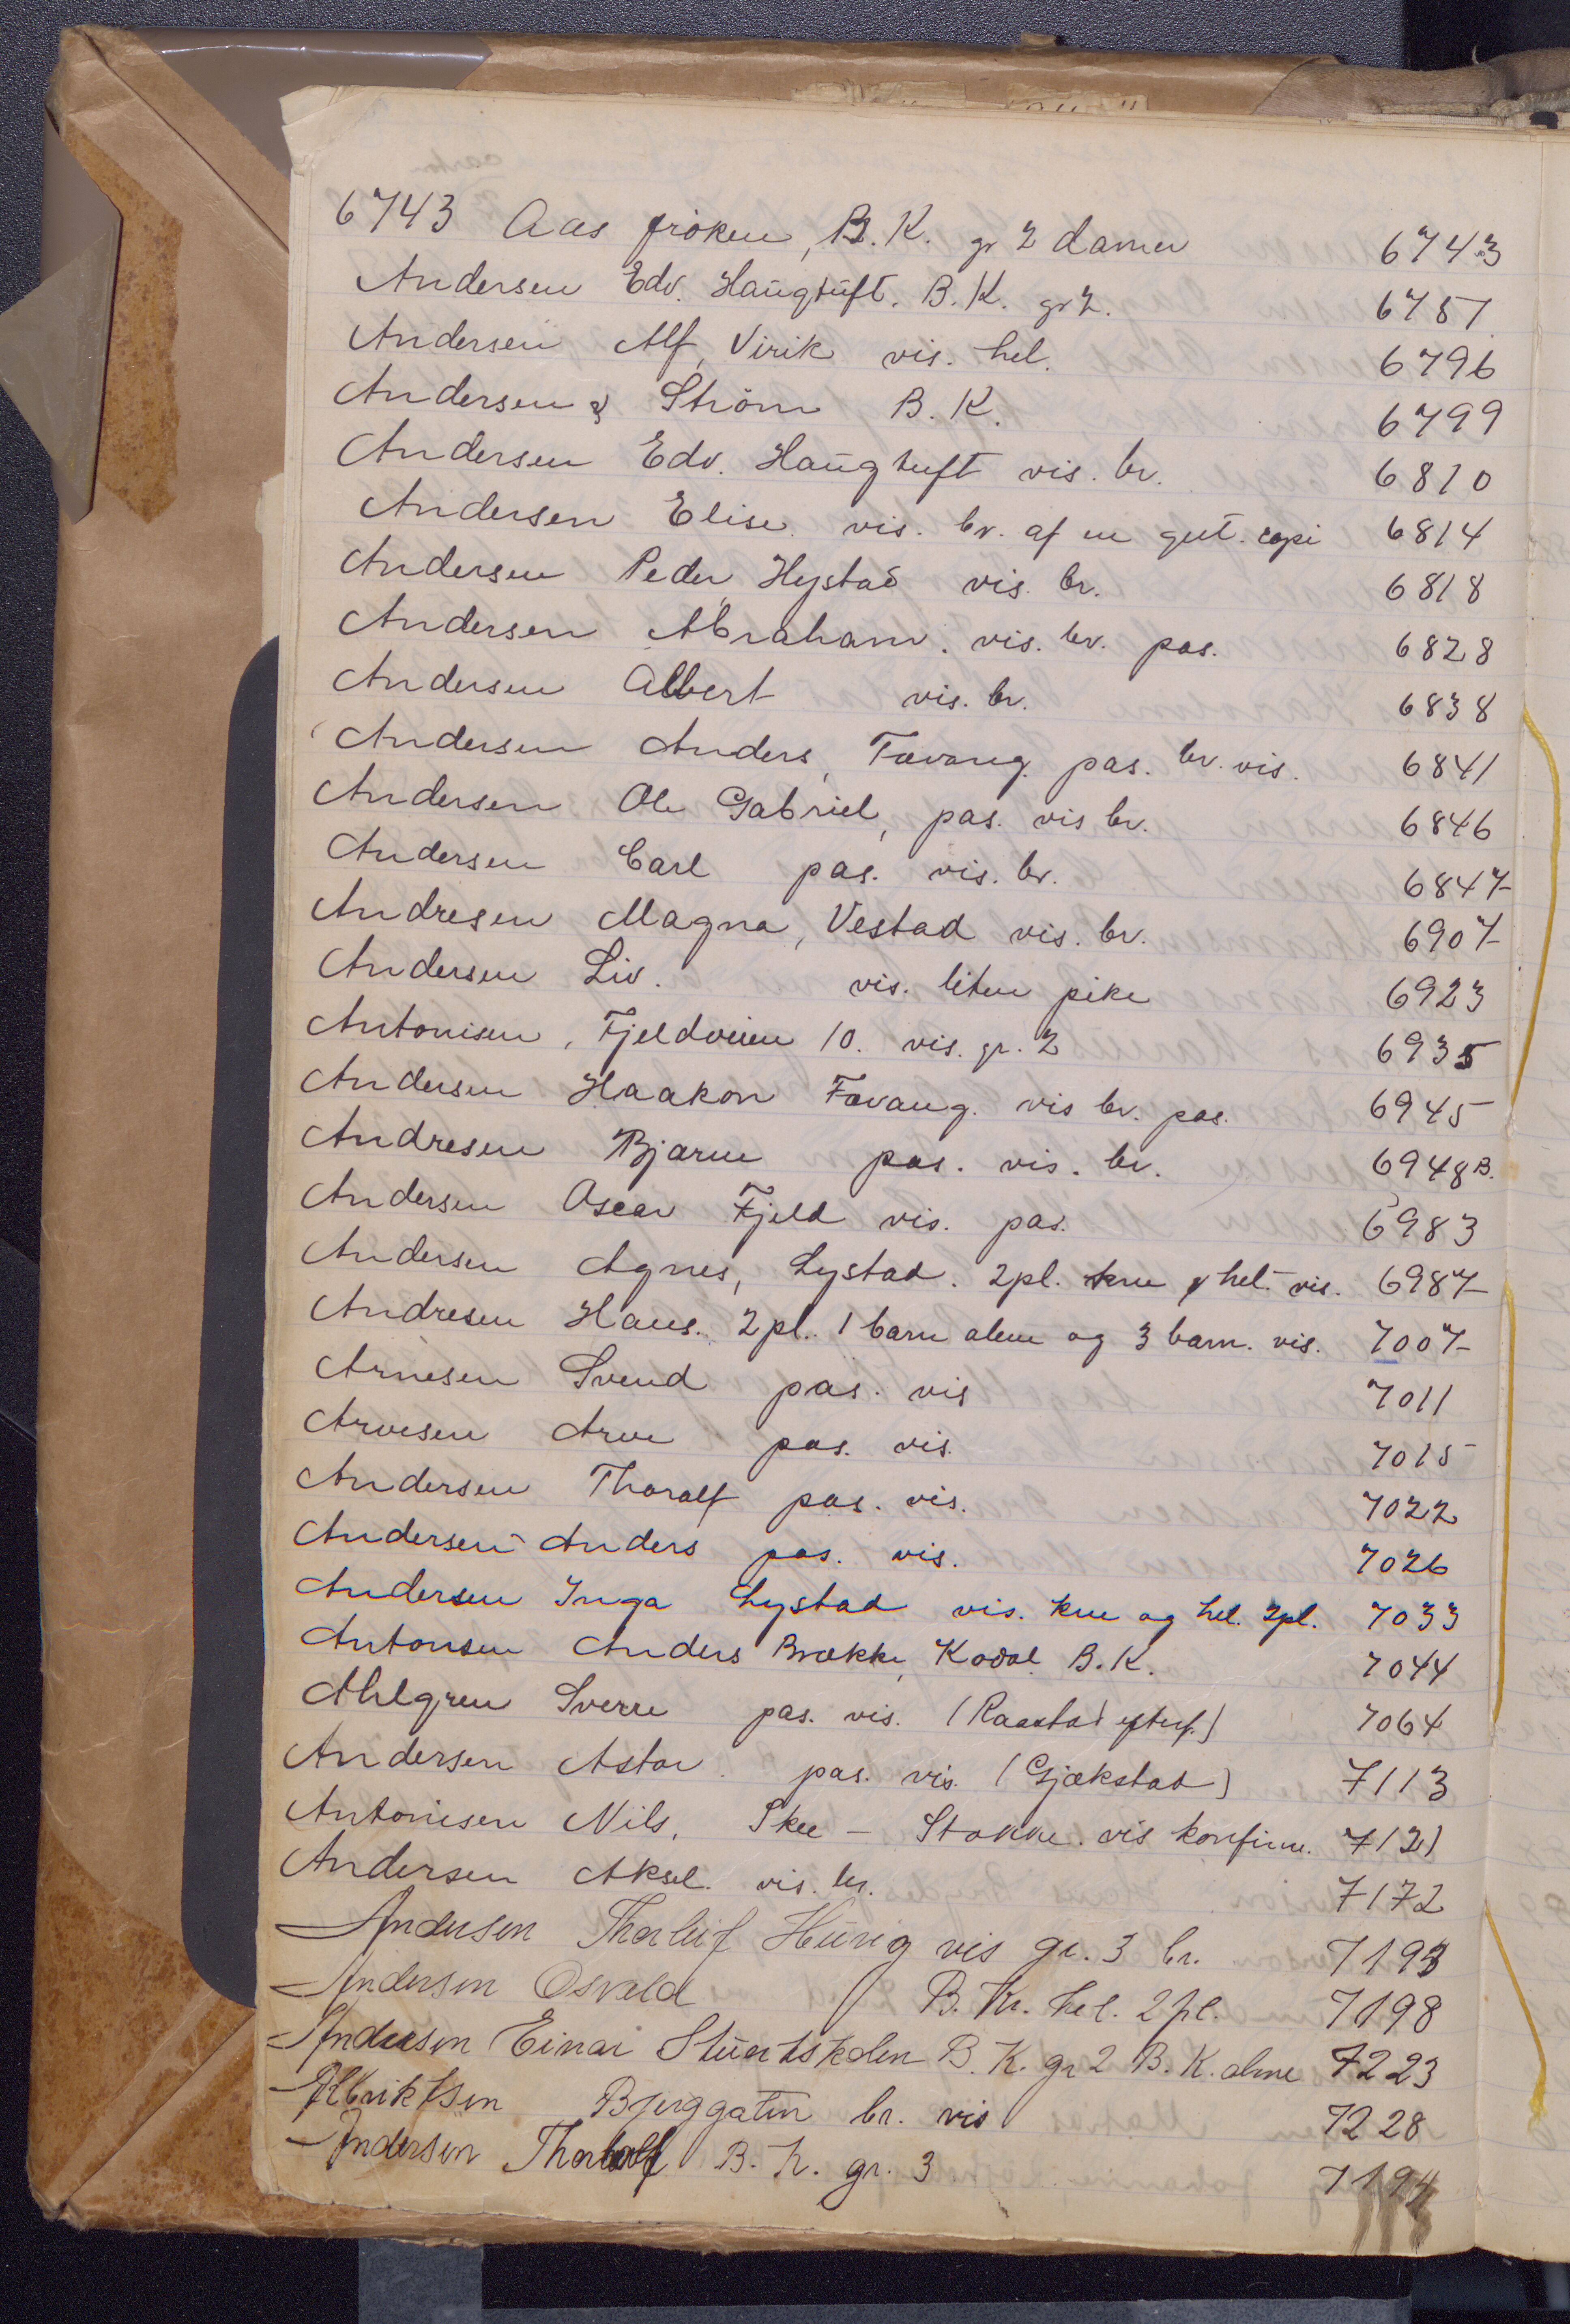 6743 Aas fröken, B.K. gr 2 damer 6743
Andersen Edv. Haugtuft. B.K. gr 2. 6757
Andersen Alf, Virik vis. hel. 6796
Andersen & Ström B.K. 6799
Andersen Edv. Haugtuft vis. br. 6810
Andersen Elise. vis. br. af en gut. copi 6814
Andersen Peder, Hystad vis. br. 6818
Andersen Abraham. vis. br. pas. 6828
Andersen Albert vis. br. 6838
Andersen Anders, Tovang. pas. br. vis. 6841
Andersen Ole Gabriel, pas. vis br. 6846
Andersen Carl pas. vis. br. 6847
Andresen Magna, Vestad vis. br. 6907
Andersen Liv. vis. liten pike 6923
Antonisen, Fjeldveien 10. vis. gr. 2 6935
Andersen Haakon Fevang. vis br. pas. 6945
Andresen Bjarne pas. vis. br. 6948 B.
Andersen Oscar Fjeld vis. pas. 6983
Andersen Agnes, Lystad. 2pl. kne hel. vis. 6987
Andresen Hans. 2 pl. 1 barn alene og 3 barn. vis. 7007
Arnesen Svend pas. vis 7011
Arvesen Arve pas. vis. 7015
Andersen Thoralf pas. vis. 7022
Andersen Anders pas. vis. 7026
Andersen Inga Lystad vis. kne og hel. 2pl. 7033
Antonsen Anders Brække, Kodal B.K. 7044
Ahlgren Sverre pas. vis. (Raastad efterf.) 7064
Andersen Astor. pas. vis. (Gjekstad) 7113
Antonisen Nils, Skee - Stokke. vis konfirm. 7121
Andersen Aksel. vis. br. 7172
Andersen Thorleif Huvig vis gr. 3 br. 7193
Andersen Osvald B. K. hel. 2 pl. 7198
Andersen Einar Stuertskolen B.K. gr 2 B.K. alene 7223
Albriktsen Bjerggaten br. vis 7228
Andersen Thoralf B.K. gr. 3 7194